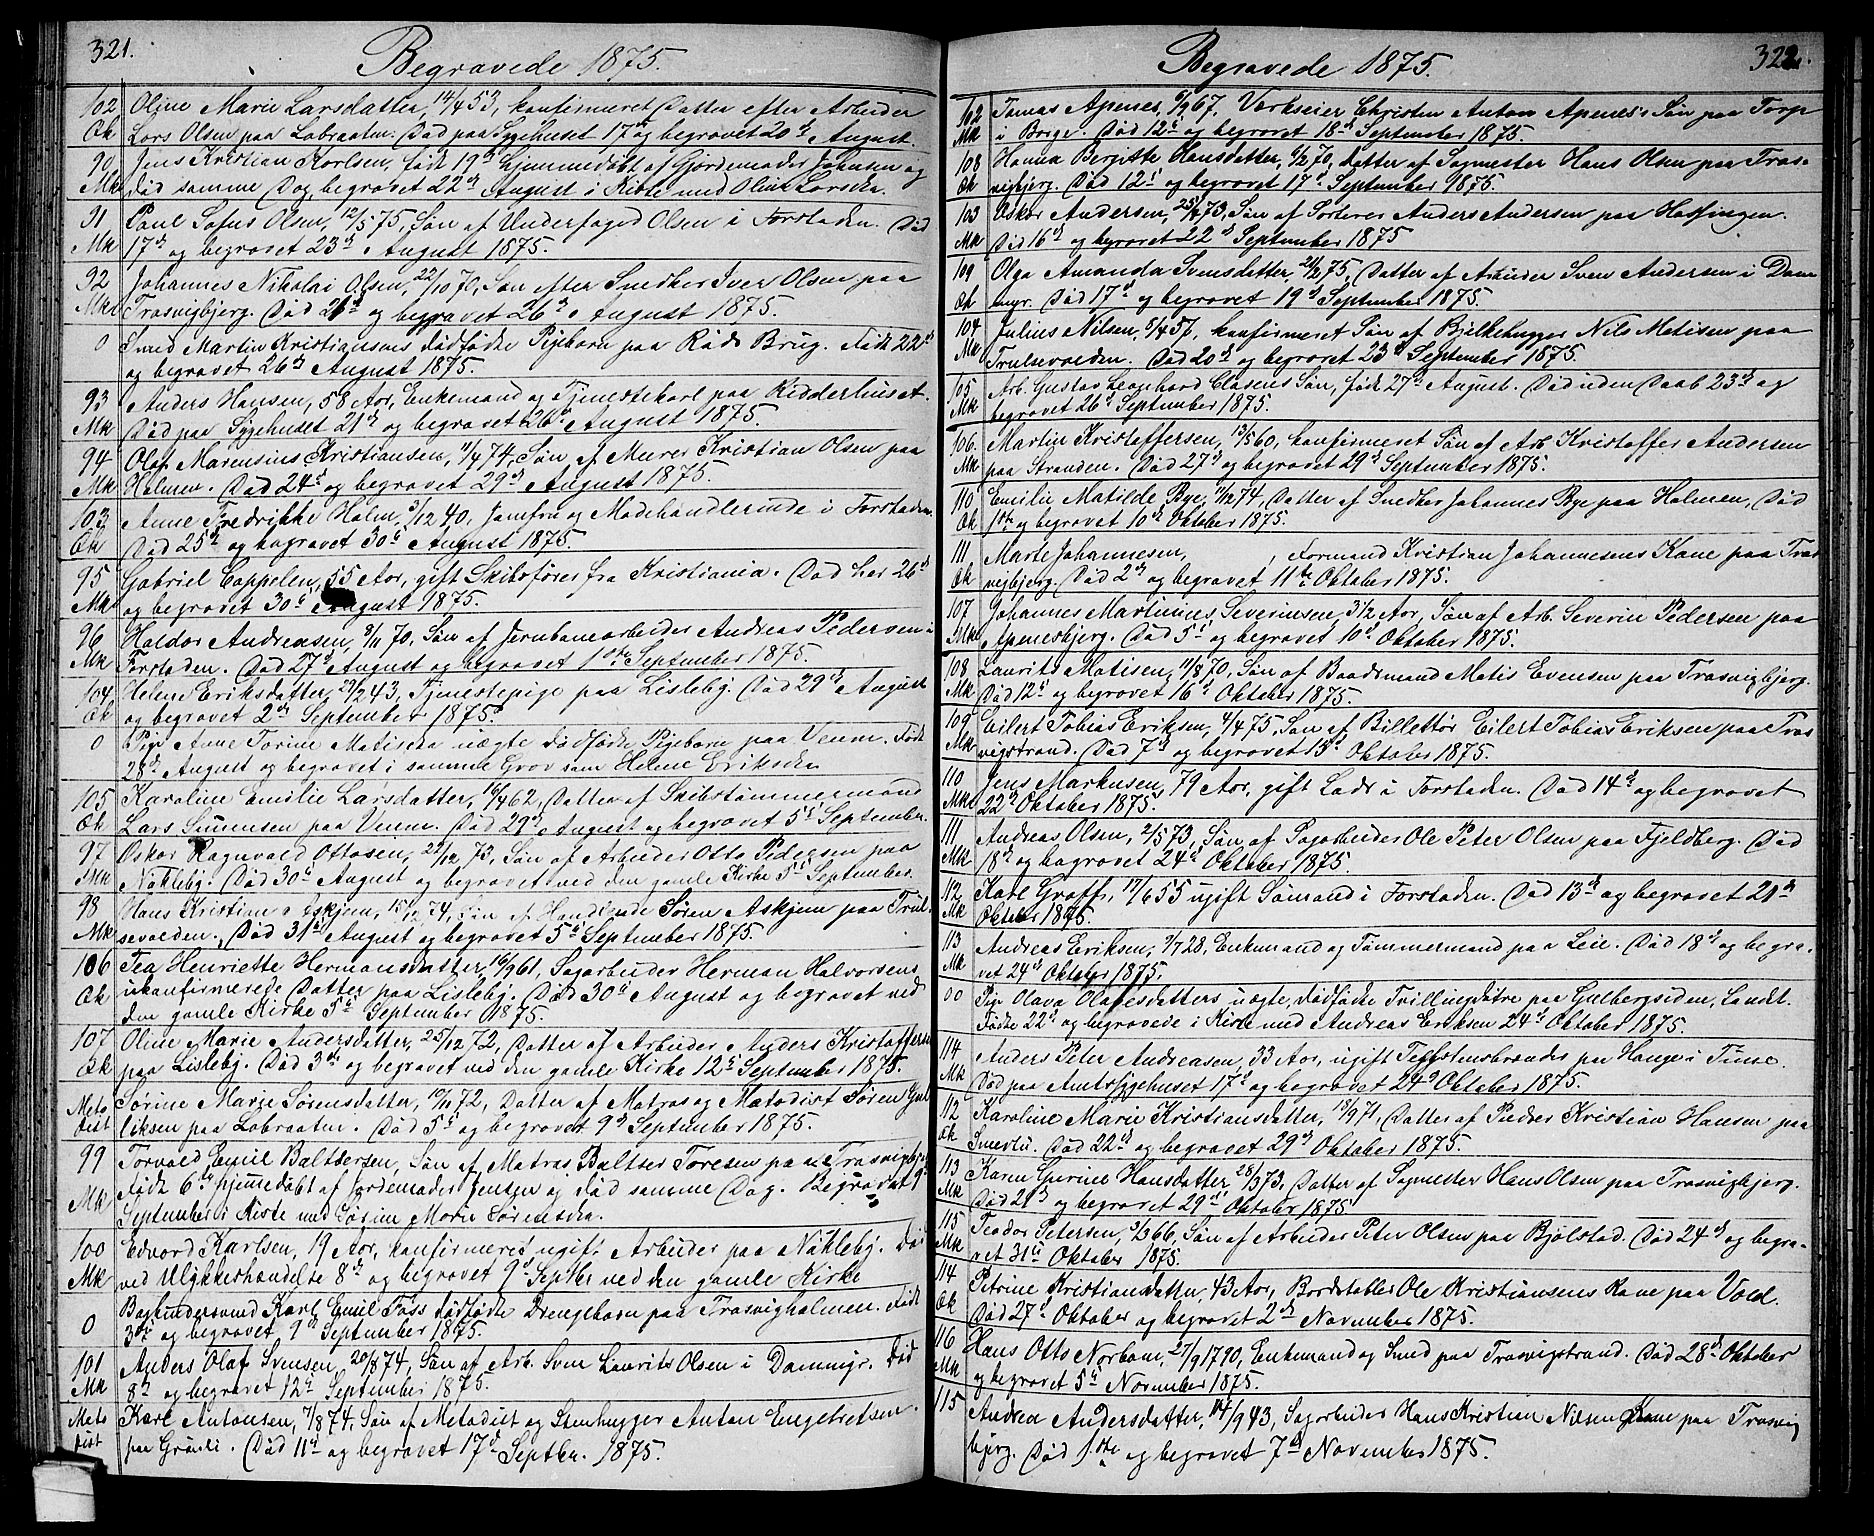 321.
Begravede 1875.
102 Oline Marie Larsdatter, 14/4 53, konfirmeret Datter efter Arbeider
Qk Lars Olsen paa Labraaten. Død paa Sygehuset 17de og begravet 20de August.
90 Jens Kristian Karlsen, født 19de hjemmedøbt af Gjordemoder Johnsen og
Mk død samme Dag, begravet 22de August i Kiste med Oline Larsda.
91 Paul Sofus Olsen, 12/5 75, Søn af Underfoged Olsen i Forstaden. Død
Mk 17de og begravet 23de August 1875.
92 Johannes Nikolai Olsen, 22/10 70, Søn efter Snedker Iver Olsen paa
Mk Trosvigbjerg. Død 21de og begravet 26de August 1875.
0 Smed Martin Kristiansens dødfødte Pigebarn paa Røds Brug. Født 22de
og begravet 26de August 1875.
93 Anders Hansen, 58 Aar, Enkemand og Tjenestekarl paa Ridderhuset.
Mk Død paa Sygehuset 21de og begravet 26de August 1875.
94 Olaf Marensius Kristiansen, 11/4 74, Søn af Murer Kristian Olsen paa
Mk Holmen. Død 24de og begravet 29de August 1875.
103 Anne Fredrikke Holm, 3/12 40, Jomfru og Modehandlerinde i Forstaden.
Qk Død 25de og begravet 30de August 1875.
95 Gabriel Coppelen, 55 Aar, gift Skibsfører fra Kristiania. Død her 26de
Mk og begravet 30de August 1875.
96 Haldor Andreasen, 8/11 70, Søn af Jernbanearbeider Andreas Pedersen i
Mk Forstaden. Død 27de August og begravet 1ste September 1875.
104 Helene Eriksdatter, 29/2 43, Tjenestepige paa Lisleby. Død 29de August
Qk og begravet 2den September 1875.
0 Pige Anne Torine Matisda uægte dødfødte Pigebarn paa Venm. Født
28de August og begravet i samme Grav som Helene Eriksda
105 Karoline Emilie Larsdatter, 16/4 62, Datter af Skibstømmermand
Qk Lars Simensen paa Venm. Død 29de August og begravet 5te September.
97 Oskar Ragnvald Ottosen, 29/12 73, Søn af Arbeider Otto Pedersen paa
Mk Nøkleby. Død 30te August og begravet ved den gamle Kirke 5te September.
98 Hans Kristian Askjem, 15/12 74, Søn af Handlende Søren Askjem paa Trul-
Mk sevolden. Død 31te August og begravet 5te September 1875.
106 Tea Henriette Hermansdatter, 16/9 61, Sagarbeider Herman Halvorsens
Qk ukonfirmerede Datter paa Lisleby. Død 30te August og begravet ved
den gamle Kirke 5te September 1875.
107 Oline Marie Andersdatter, 25/12 72, Datter af Arbeider Anders Kristoffersen
Qk paa Lisleby. Død 3die og begravet ved den gamle Kirke 12te September 1875.
Meto Sørine Marie Sørensdatter, 10/11 72, Datter af Matros og Metodist Søren Gul
dist liksen paa Labraaten. Død 5te og begravet 9de September 1875.
99 Torvald Emil Baltsersen, Søn af Matros Baltser Toresen paa Trosvigbj.
Mk født 6te hjemmedøbt af Jordemoder Jensen og død samme Dag. Begravet 9de
September i Kiste med Sørine Marie Sørensda.
100 Edvard Karlsen, 19 Aar, konfirmeret ugift Arbeider paa Nøkleby. Død
Mk ved Ulykkeshændelse 8de og begravet 9de Septbr ved den gamle Kirke
0 Karl Emil Foss dødfødte Drengebarn paa Trosvigholmen. Født
3die og begravet 9de September 1875.
101 Anders Olaf Svensen, 20/8 74, Søn af Arb. Sven Laurits Olsen i Dammyr. Død
Mk 8de og begravet 12te September 1875.
Meto Karl Antonsen, 7/8 74, Søn af Metodist og Stenhugger Anton Engebretsen
dist paa Grønli. Død 11te og begravet 17de Septbr. 1875.
322.
Begravede 1875.
102 Tomas Apenes, 6/9 67, Verkseier Christen Anton Apenes's Søn paa Torp
Mk i Borge. Død 12te og begravet 18de September 1875.
108 Hanna Bergitte Hansdatter, 6/2 70, Datter af Sagmester Hans Olsen paa Tros-
Qk vigbjerg. Død 12te og begravet 17de September 1875.
103 Oskar Andersen, 25/4 73, Søn af Sorterer Anders Andersen paa Hassingen.
Mk Død 16de og begravet 22de September 1875
109 Olga Amanda Svensdatter, 21/2 75, Datter af Arbeider Sven Andersen i Dam
Qk myr. Død 17de og begravet 19de September 1875.
104 Julius Nilsen, 5/4 57, konfirmeret Søn af Bjelkehugger Nils Matisen paa
Mk Trulsevolden. Død 20de og begravet 23de September 1875.
105 Arb. Gustav Leonhard Clasens Søn, født 27de August. Død uden Daab 23de og
Mk begravet 26de September 1875.
106 Martin Kristoffersen, 13/5 60, konfirmeret Søn af Arb. Kristoffer Andersen
Mk paa Stranden. Død 27de og begravet 29de September 1875.
110 Emilie Matilde Bye, 7/12 74, Datter af Snedker Johannes Bye paa Holmen, Død
Qk 1ste og begravet 10de Oktober 1875.
111 Marte Johannesen, , Formand Kristian Johannesens Kone paa Tros
Qk vigbjerg. Død 2den og begravet 11te Oktober 1875.
107 Johannes Martinius Severinsen, 3 1/2 Aar, Søn af Arb. Severin Pedersen paa
Mk Apenesbjerg. Død 5te og begravet 10de Oktober 1875.
108 Laurits Matisen, 11/8 70, Søn af Baadsmand Matis Evensen paa Trosvigbjerg.
Mk Død 12te og begravet 16de Oktober 1875.
109 Eilert Tobias Eriksen, 4/4 75, Søn af Billettør Eilert Tobias Eriksen paa Tros
Mk vigstrand. Død 7de og begravet 13de Oktober 1875.
110 Jens Markusen, 79 Aar, gift Lods i Forstaden. Død 14de og begravet
Mk 22de Oktober 1875.
111 Andreas Olsen, 2/5 73, Søn af Sagarbeider Ole Peter Olsen paa Fjeldberg. Død
Mk 18de og begravet 24de Oktober 1875.
112 Karl Graff, 17/6 55 ugift Sømand i Forstaden. Død 13de og begravet 21de
Mk Oktober 1875.
113 Andreas Eriksen, 7/7 28, Enkemand og Tømmermand paa Leie. Død 18de og begra-
Mk vet 24de Oktober 1875.
00 Pige Olava Olavesdatters uægte, dødfødte Tvillingdøtre paa Gulbergsiden, Landet.
Fødte 22de og begravede i Kiste med Andreas Eriksen 24de Oktober 1875.
114 Anders Peter Andreasen, 33 Aar, ugift Teglstensbrænder paa Hauge i Tune.
Mk Død paa Amtssygehuset 17de og begravet 24de Oktober 1875.
112 Karoline Marie Kristiansdatter, 18/9 71, Datter af Kristian Hansen paa
Qk Død 22de og begravet 29de Oktober 1875.
113 Karen Hansdatter, 28/3 73, Datter af Sagmester Hans Olsen paa Trosvigbjerg.
Mk Død 21de og begravet 29de Oktober 1875
115 Teodor Petersen, 3/3 66, Søn af Arbeider Peter Olsen paa Bjølstad. Død 24de og begra-
Mk vet 31te Oktober 1875.
114 Petrine Kristiansdatter, 43 Aar, Bordstabler Ole Kristiansens Kone paa Vold.
Qk Død 27de Oktober og begravet 2den November 1875.
116 Hans Otto Norbom, 27/9 1790, Enkemand og Smed paa Trosvigstrand. Død 28de Oktober
Mk og begravet 5te November 1875.
115 Andrea Andersdatter, 14/9 43, Sagarbeider Hans Kristian Nilsens Kone paa Trosvig
bjerg. Død 1ste og begravet 7de November 1875.